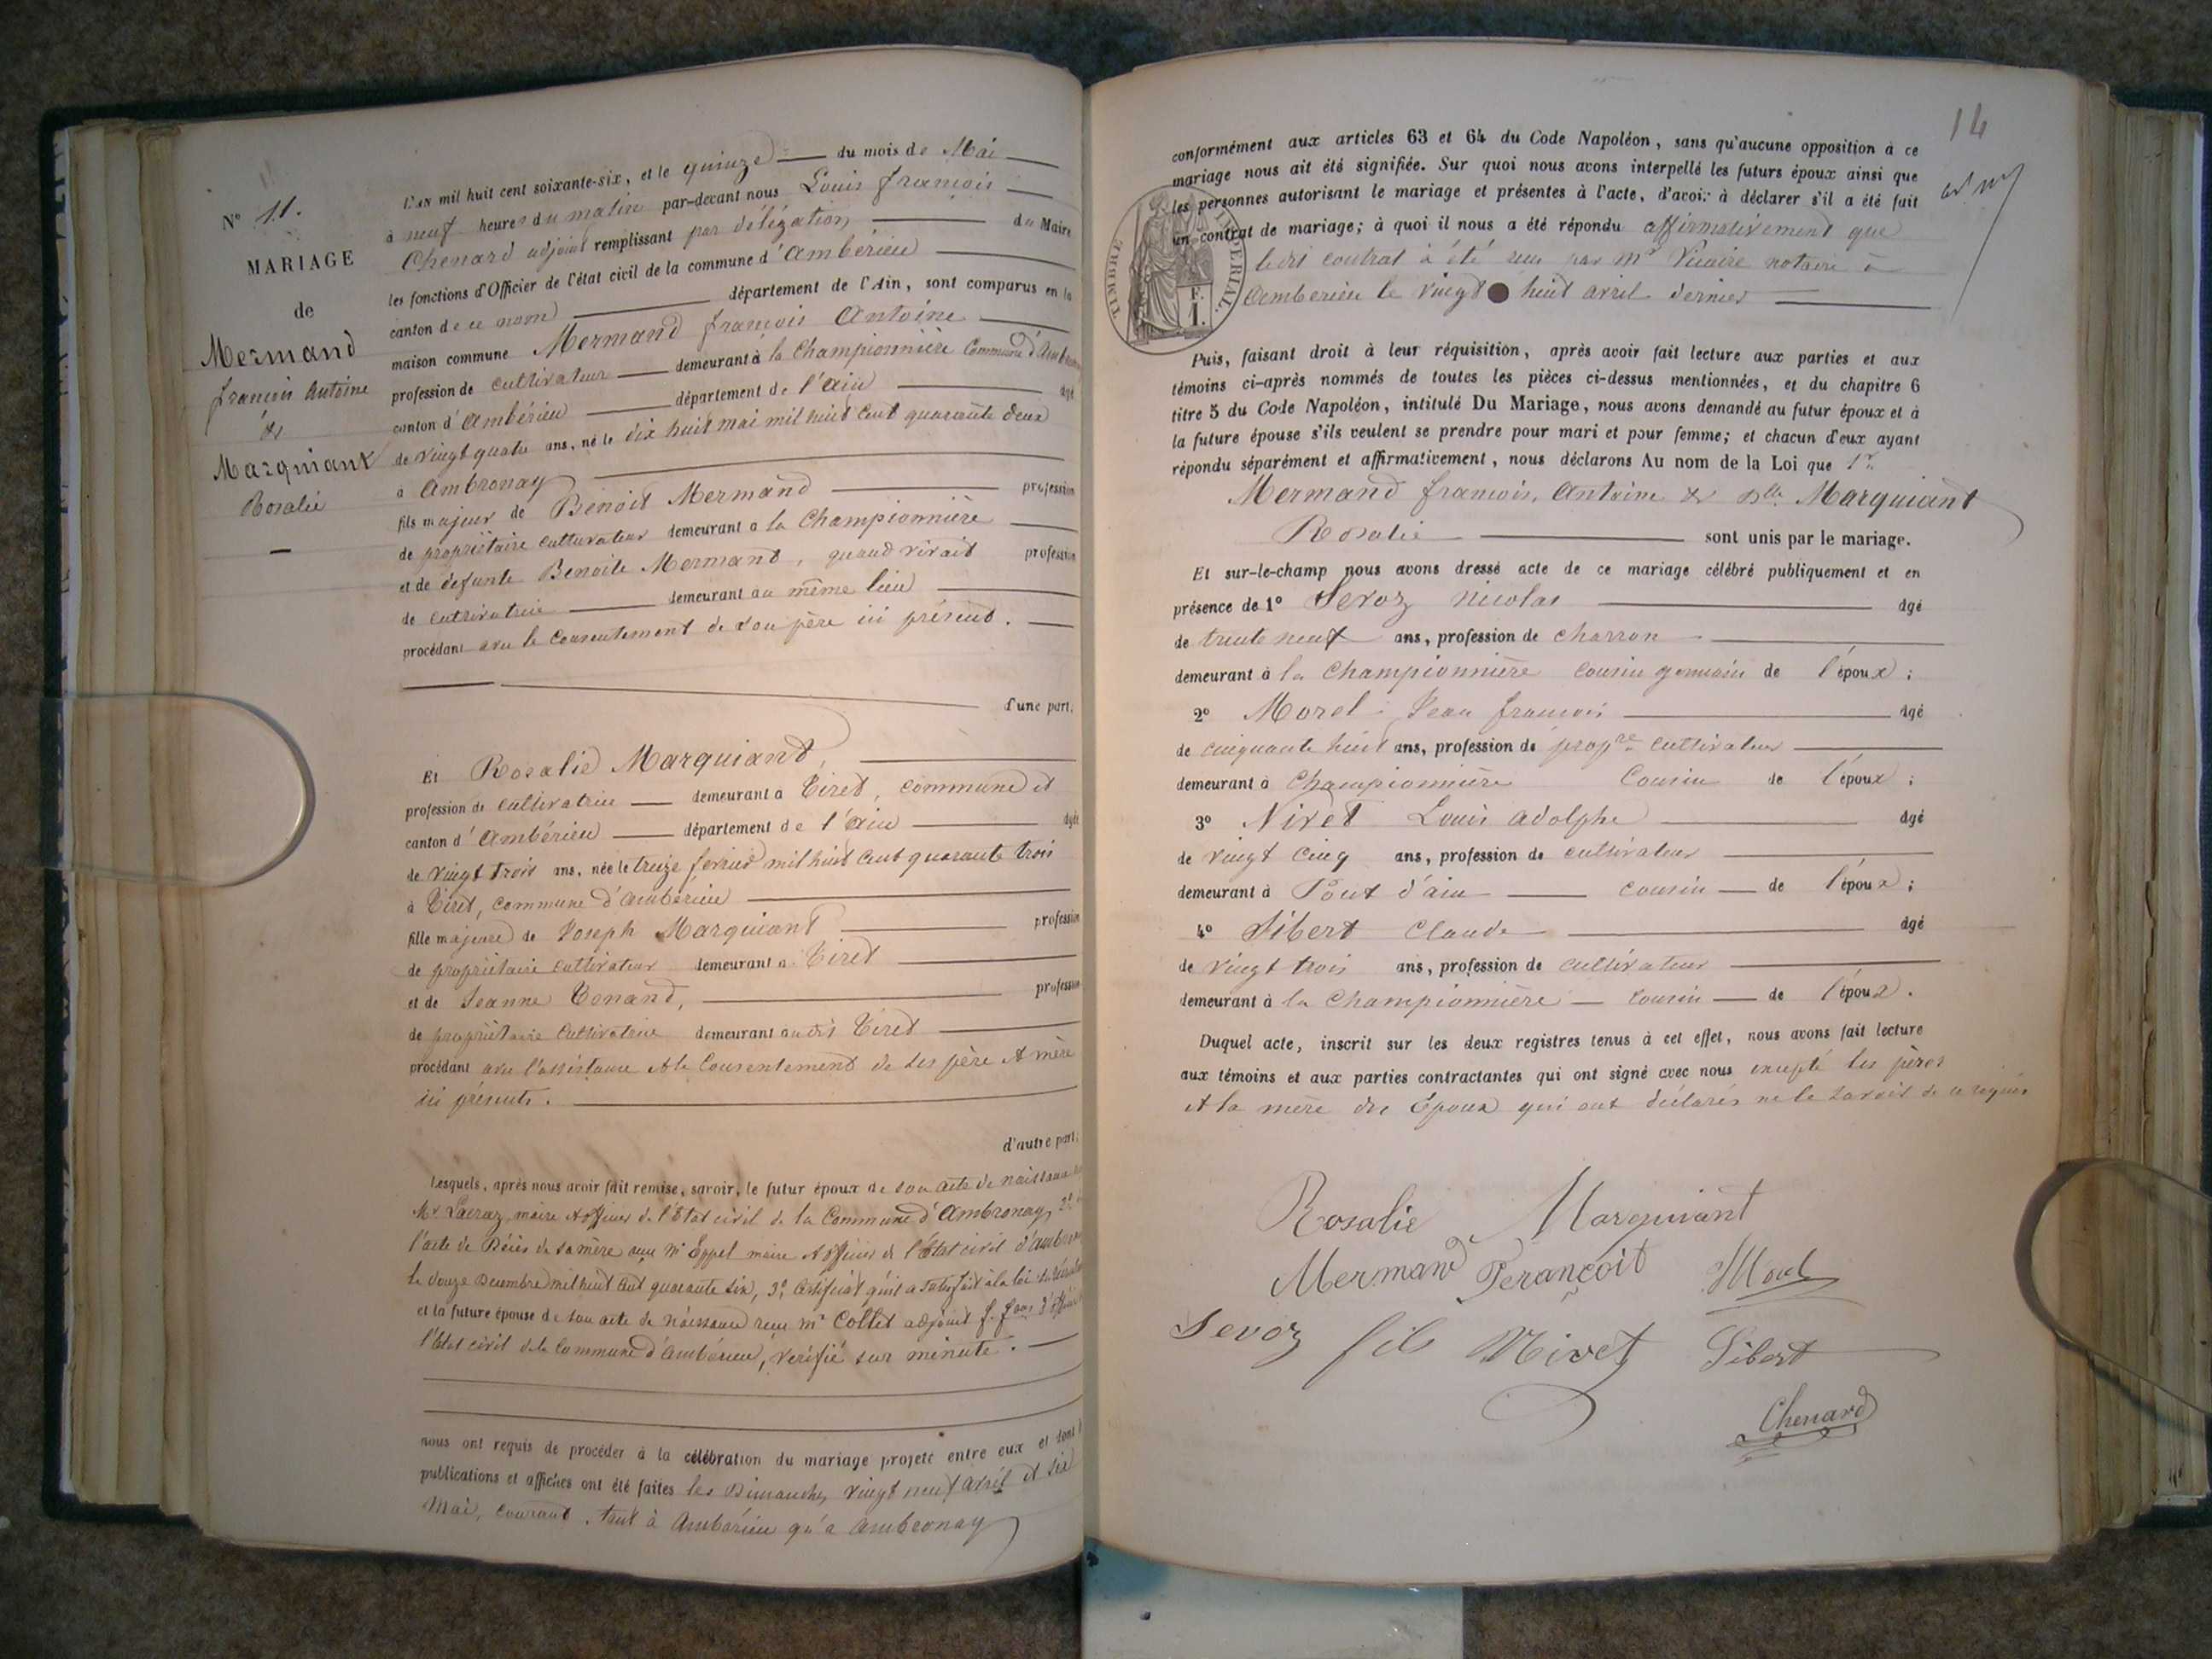 N° 11.
MARIAGE
de
Mermand
françois Antoine
&
Marquiant
Rosalie
L'an mil huit cent soixante-six, et le quinze du mois de Mai
à neuf heures du matin par-devant nous Louis françois
Chenard adjoint remplissant par délégation du Maire
les fonctions d'Officier de l'état civil de la commune d'Ambérieu
canton de ce nom département de l'Ain, sont comparus en la
maison commune Mermand françois Antoine
profession de cultivateur demeurant à la Championnière Commune d'
canton d'Ambérieu département de l'Ain âgé
de vingt quatre ans, né le dix huit mai mil huit cent quarante deux
à Ambronay
fils majeur de Benoit Mermand profession
de propriétaire cultivateur demeurant à la Championnière
et de defunte Benoite Mermand, quand vivait profession
de cultivatrice demeurant au même lieu
procédant avec le consentement de son père ici présent.
d'une part;
Et Rosalie Marquiant,
profession de cultivatrice demeurant à Tiret, commune et
canton d'Ambérieu département de l'Ain âgée
de vingt trois ans, née le treize fevrier mil huit cent quarante trois
à Tiret, commune d'Ambérieu
fille majeure de Joseph Marquiant profession
de propriétaire cultivateur demeurant à Tiret
et de Jeanne Tenand, profession
de propriétaire cultivatrice demeurant audit Tiret
procédant avec l'assistance et le consentement de ses père et mère
ici présents.
d'autre part;
Lesquels, après nous avoir fait remise, savoir, le futur époux de son acte de naissance
Mr maire et officier de l'Etat civil de la Commune d'Ambronay, 2°
l'acte de Décès de sa mère reçu Mr Eppel maire et officier de l'Etat civil
le douze Decembre mil huit cent quarante six, 3° certificat qu'il a satisfait à la loi
et la future épouse de son acte de naissance reçu Mr Collet adjoint
l'Etat civil de la Commune d'Ambérieu, vérifié sur minute.
nous ont requis de procéder à la célébration du mariage projeté entre eux et dont
publications et affiches ont été faites les Dimanches vingt neuf avril et six
Mai, courant, tant à Ambérieu qu'à Ambronay
14
conformément aux articles 63 et 64 du Code Napoléon, sans qu'aucune opposition à ce
mariage nous ait été signifiée. Sur quoi nous avons interpellé les futurs époux ainsi que
les personnes autorisant le mariage et présentes à l'acte, d'avoir à déclarer s'il a été fait
un contrat de mariage; à quoi il nous a été répondu affirmativement que
ledit contrat à été reçu par Me Vicaire notaire à
Amberieu le vingt huit avril dernier
TIMBRE IMPERIAL.
F.
1.
Puis, faisant droit à leur réquisition, après avoir fait lecture aux parties et aux
témoins ci-après nommés de toutes les pièces ci-dessus mentionnées, et du chapitre 6
titre 5 du Code Napoléon, intitulé Du Mariage, nous avons demandé au futur époux et à
la future épouse s'ils veulent se prendre pour mari et pour femme; et chacun d'eux ayant
répondu séparément et affirmativement, nous déclarons Au nom de la Loi que
Mermand françois, Antoine & Dlle Marquiant
Rosalie sont unis par le mariage.
Et sur-le-champ nous avons dressé acte de ce mariage célébré publiquement et en
présence de 1° Sevoz Nicolas âgé
de trente neuf ans, profession de charron
demeurant à la Championnière cousin germain de l'époux;
2° Morel Jean françois âgé
de cinquante huit ans, profession de propre cultivateur
demeurant à Championnière Cousin de l'époux;
3° Nivet Louis adolphe âgé
de vingt cinq ans, profession de cultivateur
demeurant à Pont d'ain cousin de l'époux;
4° Sibert Claude âgé
de vingt trois ans, profession de cultivateur
demeurant à la Championnière cousin de l'époux.
Duquel acte, inscrit sur les deux registres tenus à cet effet, nous avons fait lecture
aux témoins et aux parties contractantes qui ont signé avec nous excepté les pères
et la mère des Époux qui ont déclarés ne le savoir de ce requis
Rosalie Marquiant
Mermand Ferançoit Morel
Sevoz fils Nivet Sibert
Chenard